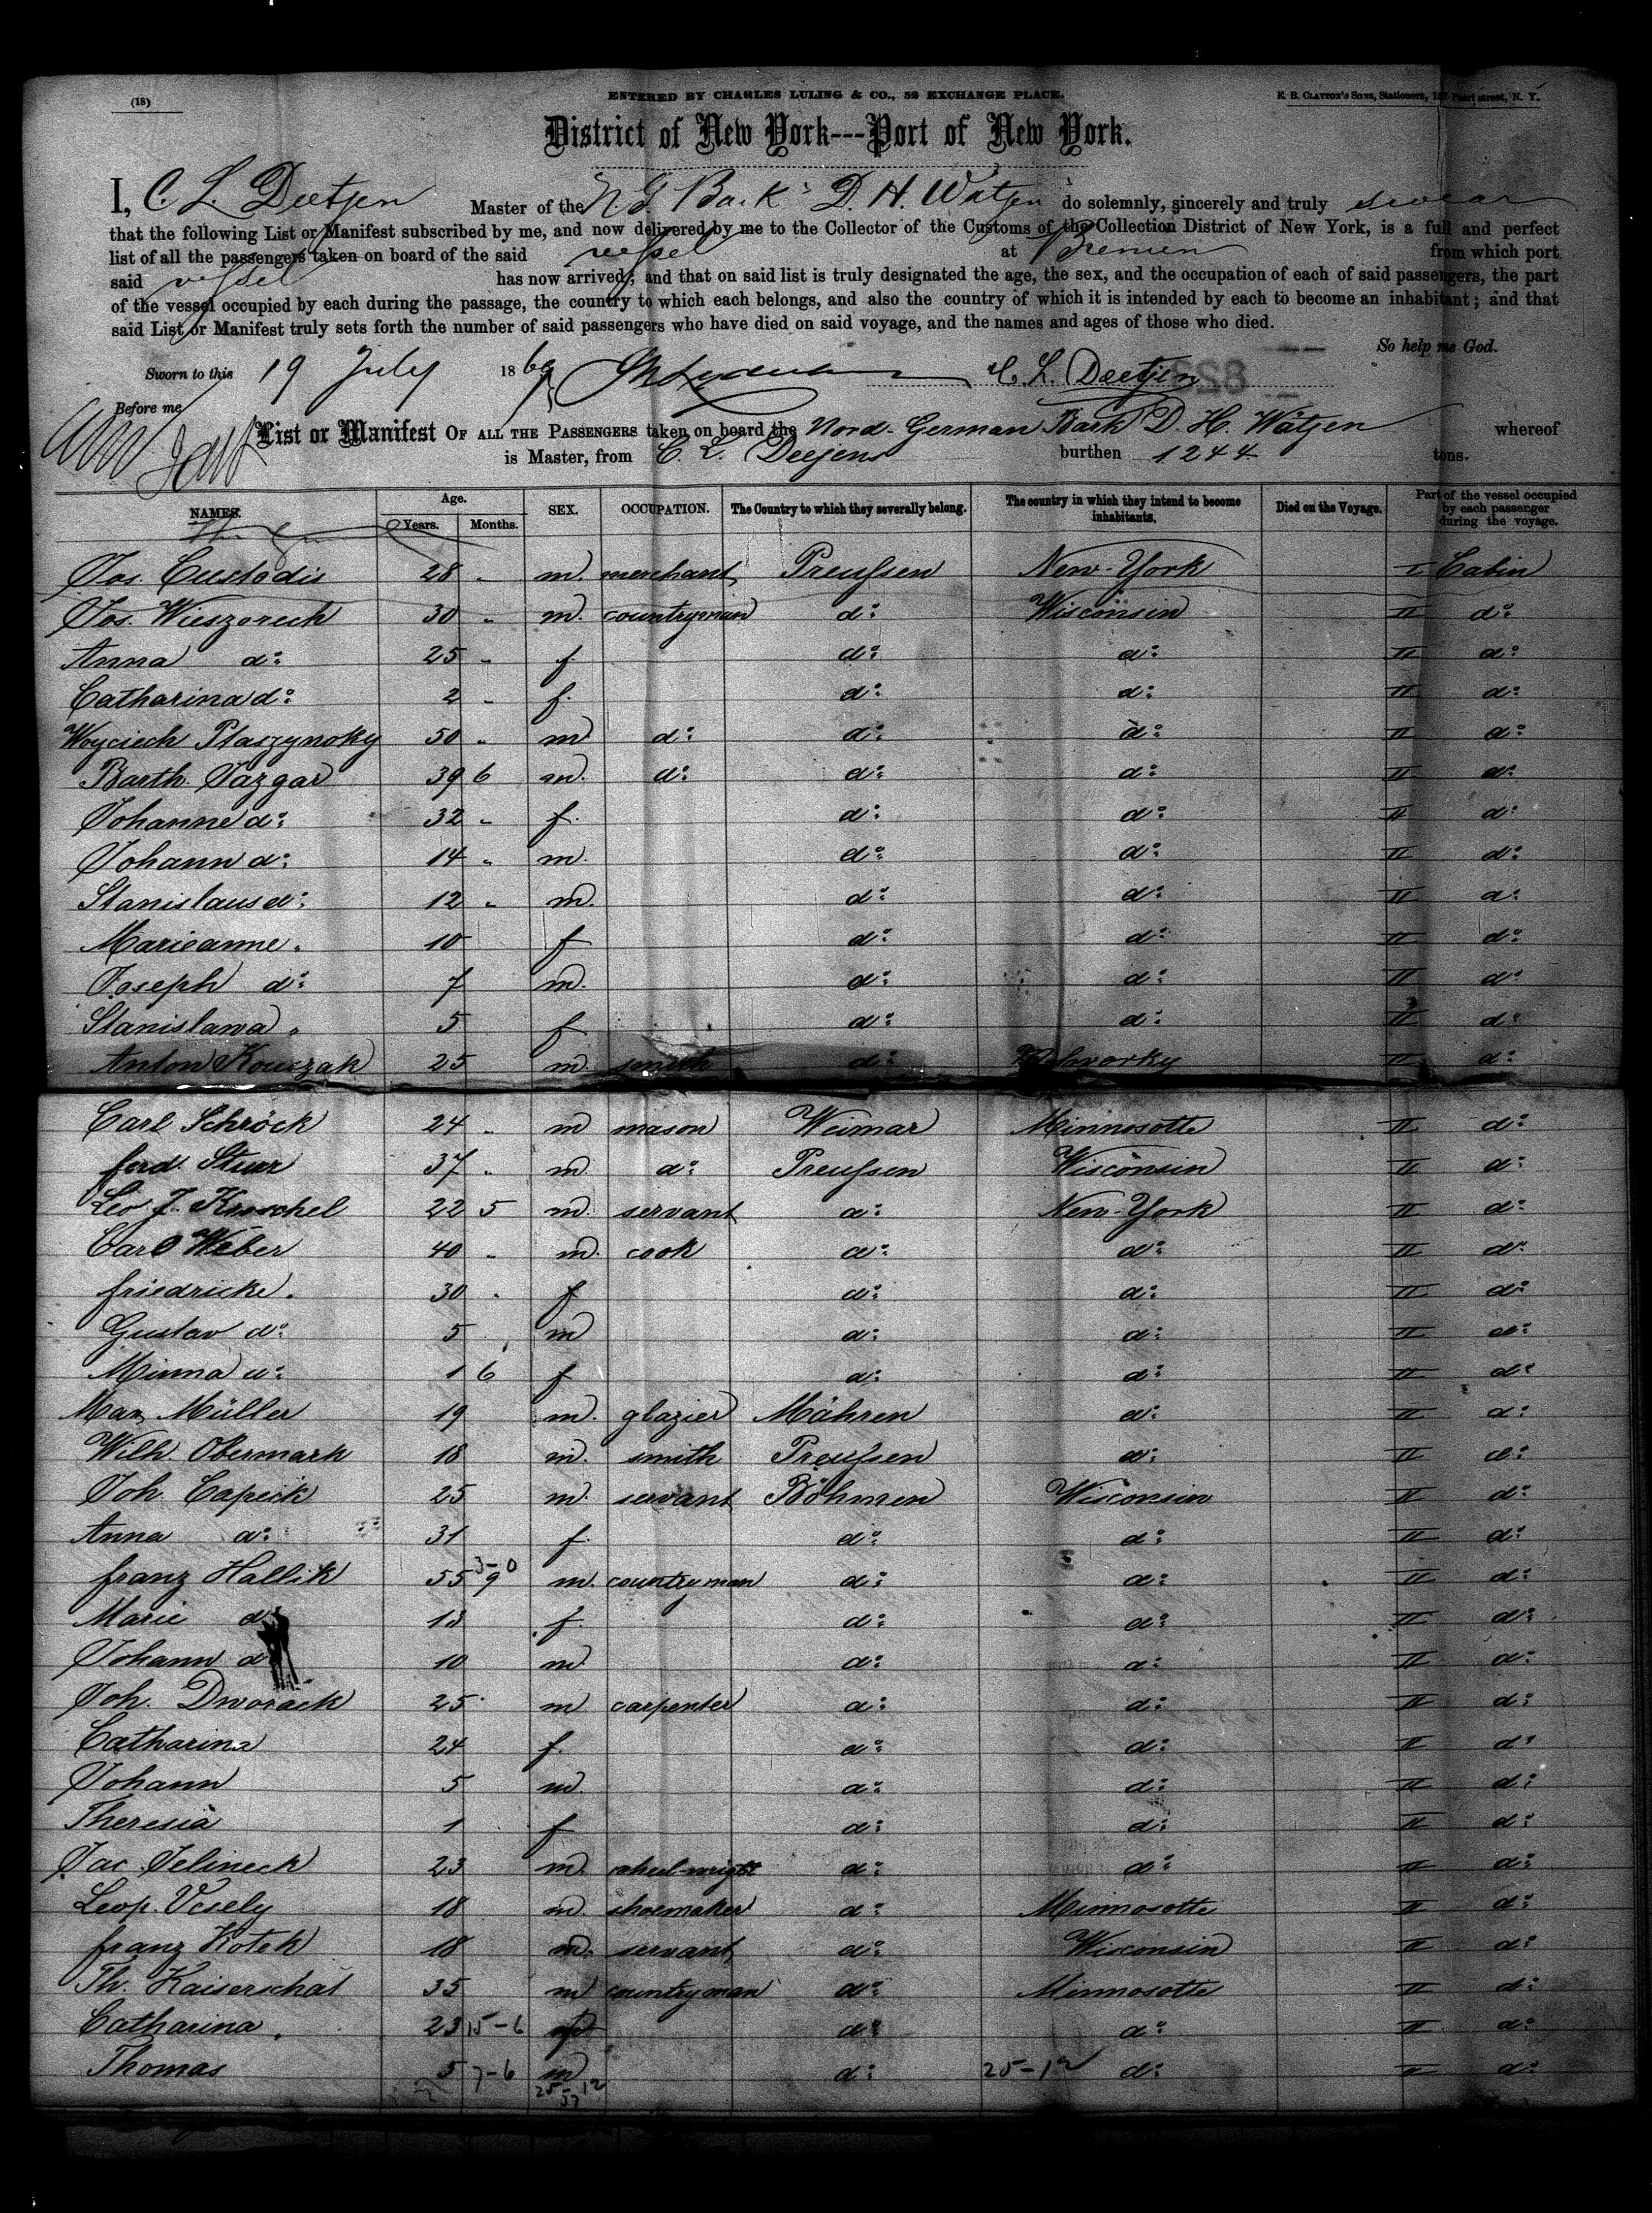 (18)
ENTERED BY CHARLES LULING & CO., 52 EXCHANGE PLACE.
E. B. CLAYTON'S SONS, Stationers, 157 Pearl street, N. Y.
District of New York---Port of New York.
I, C. L. Deetjen Master of the N. G. Bark D. H. Wätjen do solemnly, sincerely and truly swear
that the following List or Manifest subscribed by me, and now delivered by me to the Collector of the Customs of the Collection District of New York, is a full and perfect
list of all the passengers taken on board of the said vessel at Bremen from which port
said vessel has now arrived; and that on said list is truly designated the age, the sex, and the occupation of each of said passengers, the part
of the vessel occupied by each during the passage, the country to which each belongs, and also the country of which it is intended by each to become an inhabitant; and that
said List or Manifest truly sets forth the number of said passengers who have died on said voyage, and the names and ages of those who died.
So help me God.
Sworn to this 19 July 1869 C. L. Deetjen
Before me
List or Manifest OF ALL THE PASSENGERS taken on board the Nord-German Bark D. H. Wätjen whereof
is Master, from C. L. Deejens burthen 1244 tons.
NAMES. Age. Years. Months. SEX. OCCUPATION. The Country to which they severally belong. The country in which they intend to become inhabitants. Died on the Voyage. Part of the vessel occupied by each passenger during the voyage.
Jos. Custodis 28 " m. merchant Preußen New-York I Cabin
Jos. Wieszoreck 30 " m. countryman d: Wisconsin II d:
Anna d: 25 " f. d: d: II d:
Catharina d: 2 " f. d: d: II d:
Woyciech Ptaszynsky 50 " m d: d: d: II d:
Barth. Jazgar 39 6 m. d: d: d: II d:
Johanne d: 32 " f. d: d: II d:
Johann d: 14 " m. d: d: II d:
Stanislaus d: 12 " m. d: d: II d:
Marieanne " 10 f d: d: II d:
Joseph d: 7 m. d: d: II d:
Stanislawa " 5 f d: d: II d:
Anton Kouszak 25 m. smith d: II d:
Carl Schröck 24 " m mason Weimar Minnosotte II d:
ferd. Stuer 37 " m. d: Preußen Wisconsin II d:
Leo J. Kroschel 22 5 m. servant d: New-York II d:
Carl Weber 40 " m. cook d: d: II d:
friedricke " 30 " f d: d: II d:
Gustav d: 5 m d: d: II d:
Minna d: 1 6 f d: d: II d:
Max Müller 19 m. glazier Mähren d: II d:
Wilh. Obermark 18 m. smith Preußen d: II d:
Joh. Capeck 25 m. servant Böhmen Wisconsin II d:
Anna d: 31 f. d: d: II d:
franz Hallik 55 9 m. countryman d: d: II d:
Marie d: 13 f. d: d: II d:
Johann d: 10 m. d: d: II d:
Joh. Dworack 25 m carpenter d: d: II d:
Catharina 24 f. d: d: II d:
Johann 5 m. d: d: II d:
Theresia 1 f d: d: II d:
Jac. Jelineck 23 m. wheel-wright d: d: II d:
Leop. Vesely 18 m shoemaker d: Minnosotte II d:
franz Kotek 18 m. servant d: Wisconsin II d:
Th. Kaiserschat 35 m countryman d: Minnosotte II d:
Catharina " 23 15-6 f d: d: II d:
Thomas 5 7-6 m d: 25-12 d: II d: